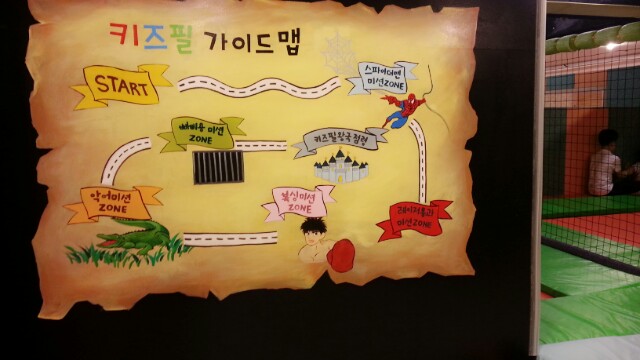 키즈필 가이드맵
START
스파이더맨
미션ZONE
빠삐용 미션
ZONE
키즈필왕국점령
악어미션
ZONE
복싱미션
ZONE
레이저통과
미션ZONE